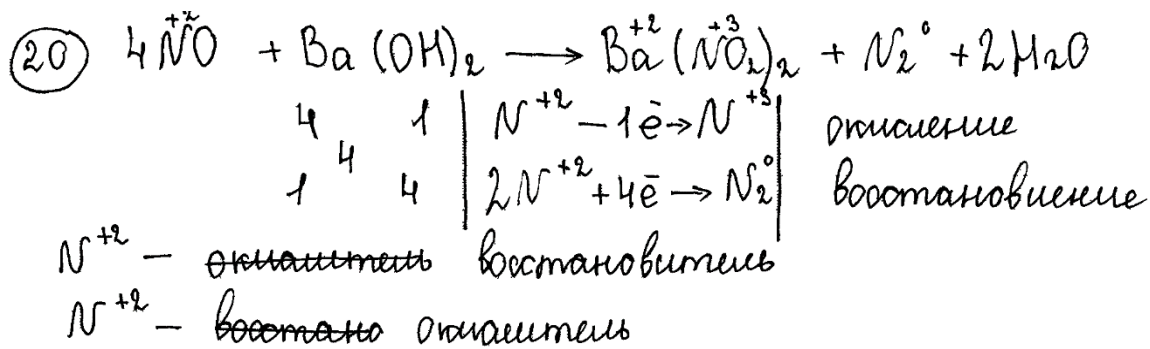 20 4N⁺²O + Ba(OH)₂ ⟶ Ba⁺²(N⁺³O₂)₂ + N₂⁰ + 2H₂O
4 4 1 | N⁺² – 1ē → N⁺³ | окисление
1 4 | 2N⁺² + 4ē → N₂⁰ | восстановление
N⁺² – окислитель восстановитель
N⁺² – восстано окислитель